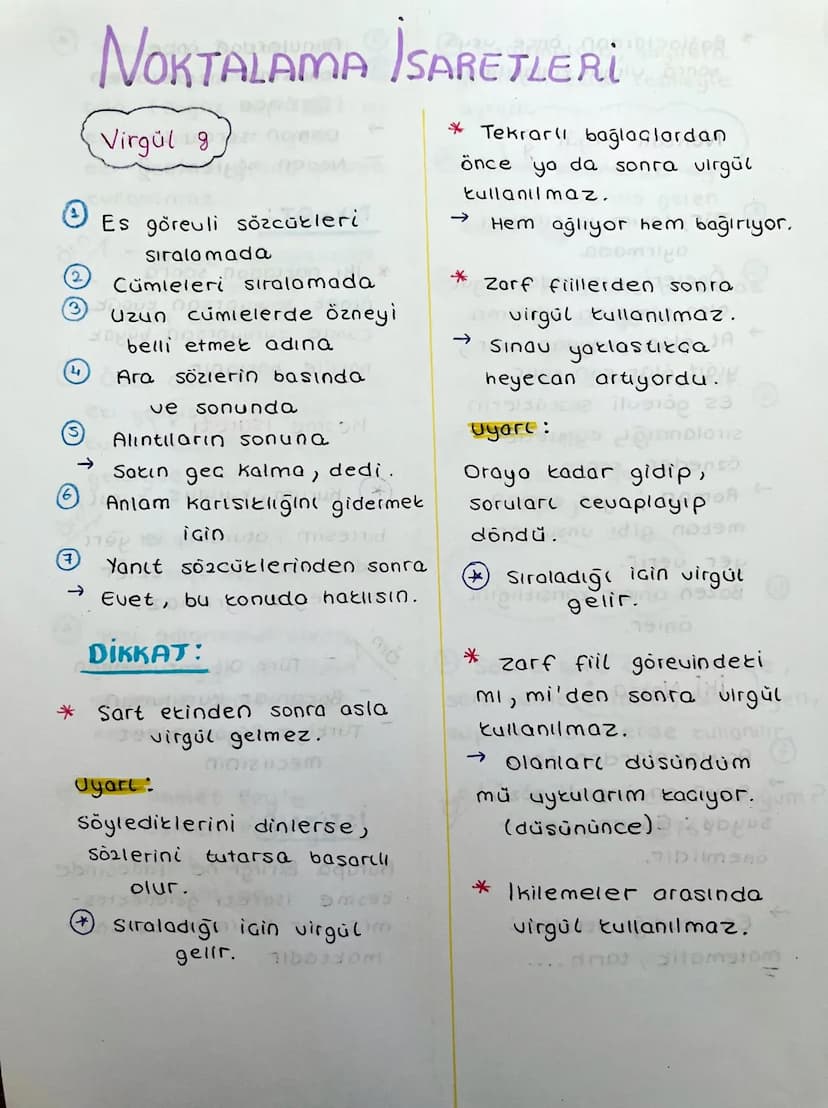 NOKTALAMA İSARETLERİ
Virgül ,
1 Es görevli sözcükleri
sıralamada
2 Cümleleri sıralamada
3 Uzun cümlelerde özneyi
belli etmek adına
4 Ara sözlerin basında
ve sonunda
5 Alıntıların sonuna
→ Sakın gec kalma, dedi.
6 Anlam karısıklığını gidermek
icin
7 Yanıt sözcüklerinden sonra
→ Evet, bu konuda haklısın.
DİKKAT:
* Sart ekinden sonra asla
virgül gelmez.
Uyarı:
Söylediklerini dinlerse,
sözlerini tutarsa basarılı
olur.
* Sıraladığı icin virgül
gelir.
* Tekrarlı bağlaclardan
önce ya da sonra virgül
kullanılmaz.
→ Hem ağlıyor hem bağırıyor.
* Zarf fiillerden sonra
virgül kullanılmaz.
→ Sınav yaklastıkca
heyecan artıyordu.
Uyarı:
Oraya kadar gidip,
soruları cevaplayıp
döndü.
* Sıraladığı icin virgül
gelir.
* Zarf fiil görevindeki
mı, mi'den sonra virgül
kullanılmaz.
→ Olanları düsündüm
mü uykularım kacıyor.
(düsününce)
* Ikilemeler arasında
virgül kullanılmaz.